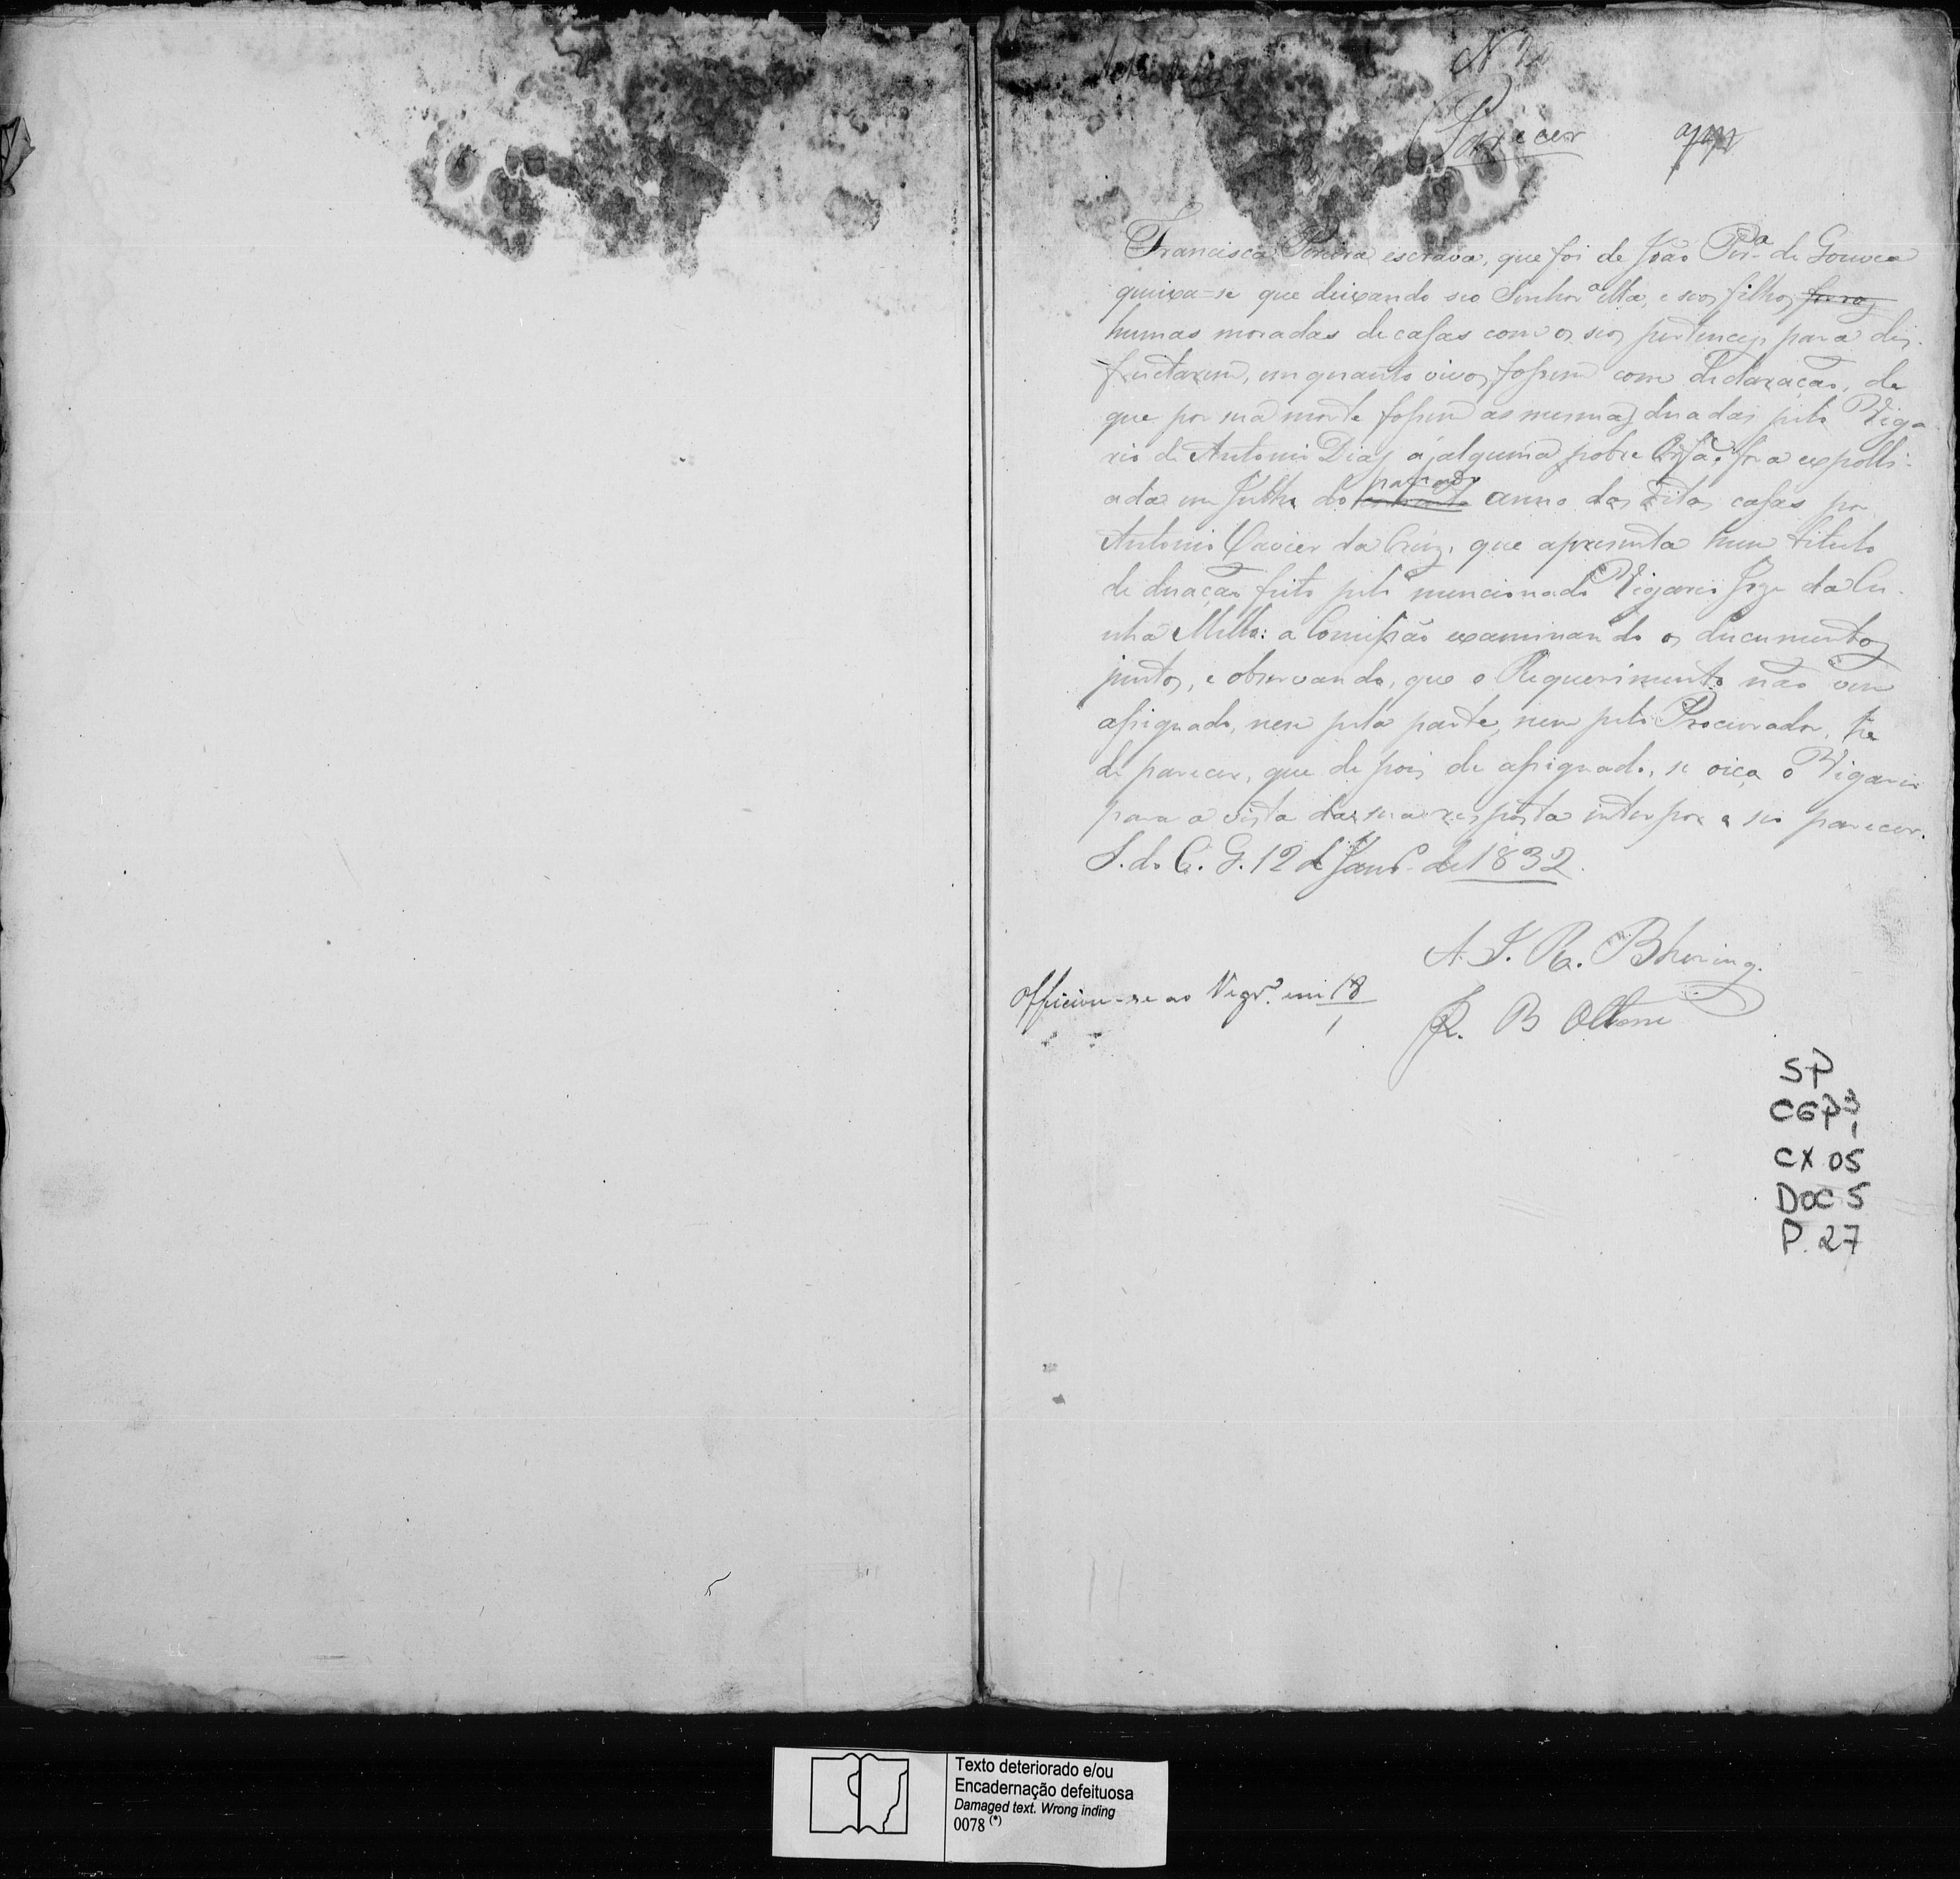 Parecer
Francisca Pereira escrava, que foi de João Per.ª de Gouvea
queixa-se que deixando seo Senhor a ella, e seos filhos forros
humas moradas de casas com os seos pertences para dis-
fructarem, em quanto vivos fossem com declaração, de
que por sua morte fossem as mesmas doadas pelo Viga-
rio de Antonio Dias a alguma pobre Orfã, fora expolli-
ada em Julho do passado anno das ditas casas por
Antonio Xavier da Cruz, que apresenta hum titulo
de doação feito pelo mencionado Vigario Joze da Cu-
nha Mello: a Comissão examinando os documentos
juntos, e observando, que o Requerimento não vem
assignado, nem pela parte, nem pelo Procurador, he
de parecer, que depois de assignado, se oiça o Vigario
para a vista da sua resposta interpor o seo parecer.
S. do C. G. 12 de Janr.º de 1832.
A. J. R. Bhering.
J. B Ottoni
Officiou-se ao Vigr.º em 18
1
SP
CGP 3
1
CX 05
DOC 5
P. 27
Texto deteriorado e/ou
Encadernação defeituosa
Damaged text. Wrong inding
0078 (*)